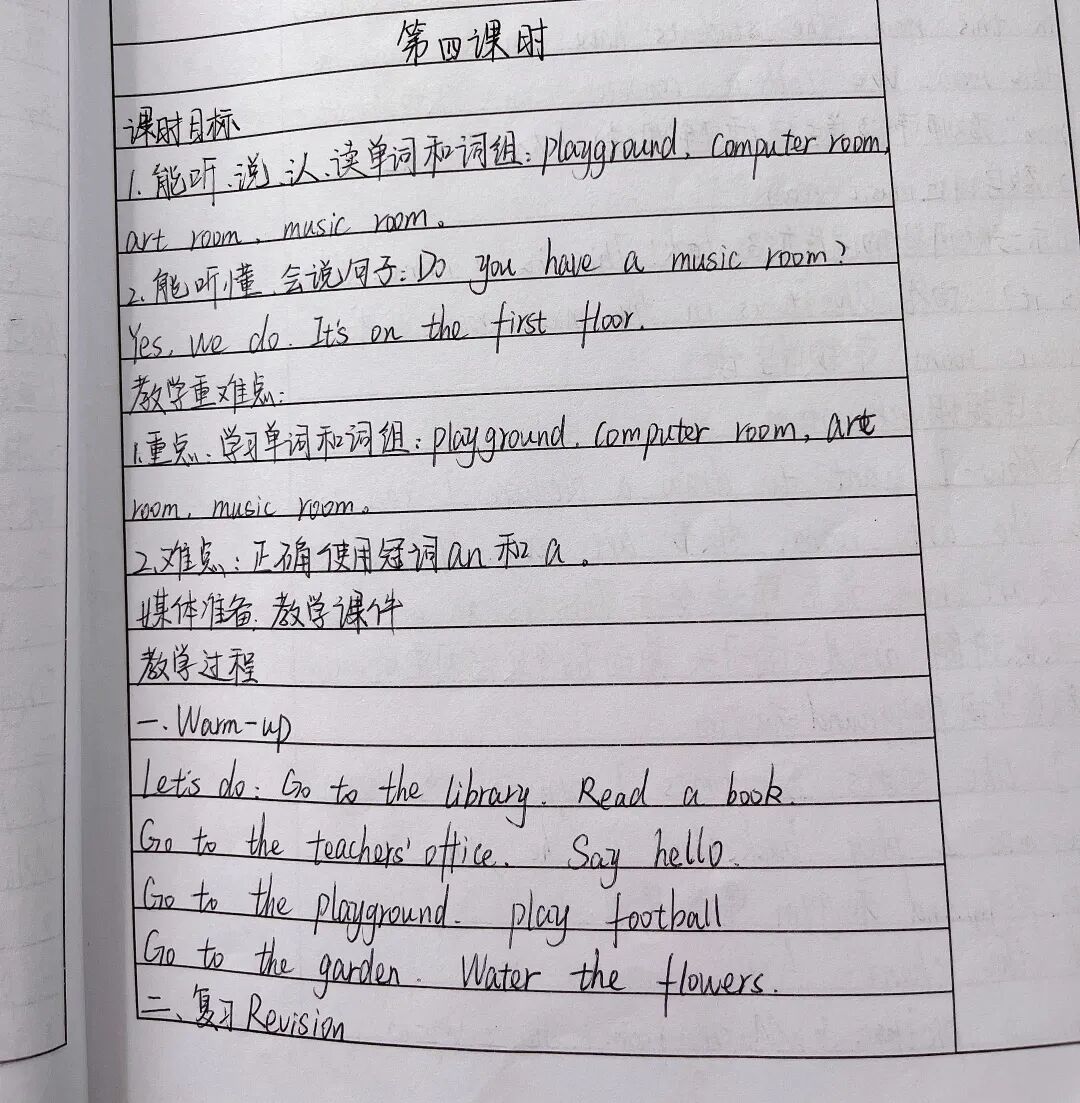 第四课时
课时目标
1.能听、说、认、读单词和词组:playground, computer room,
art room, music room。
2.能听懂、会说句子:Do you have a music room?
Yes, we do. It's on the first floor.
教学重难点:
1.重点:学习单词和词组:playground, computer room, art
room, music room。
2.难点:正确使用冠词an和a。
媒体准备:教学课件
教学过程
一. Warm-up
Let's do: Go to the library. Read a book.
Go to the teachers' office. Say hello.
Go to the playground. play football
Go to the garden. Water the flowers.
二、复习Revision